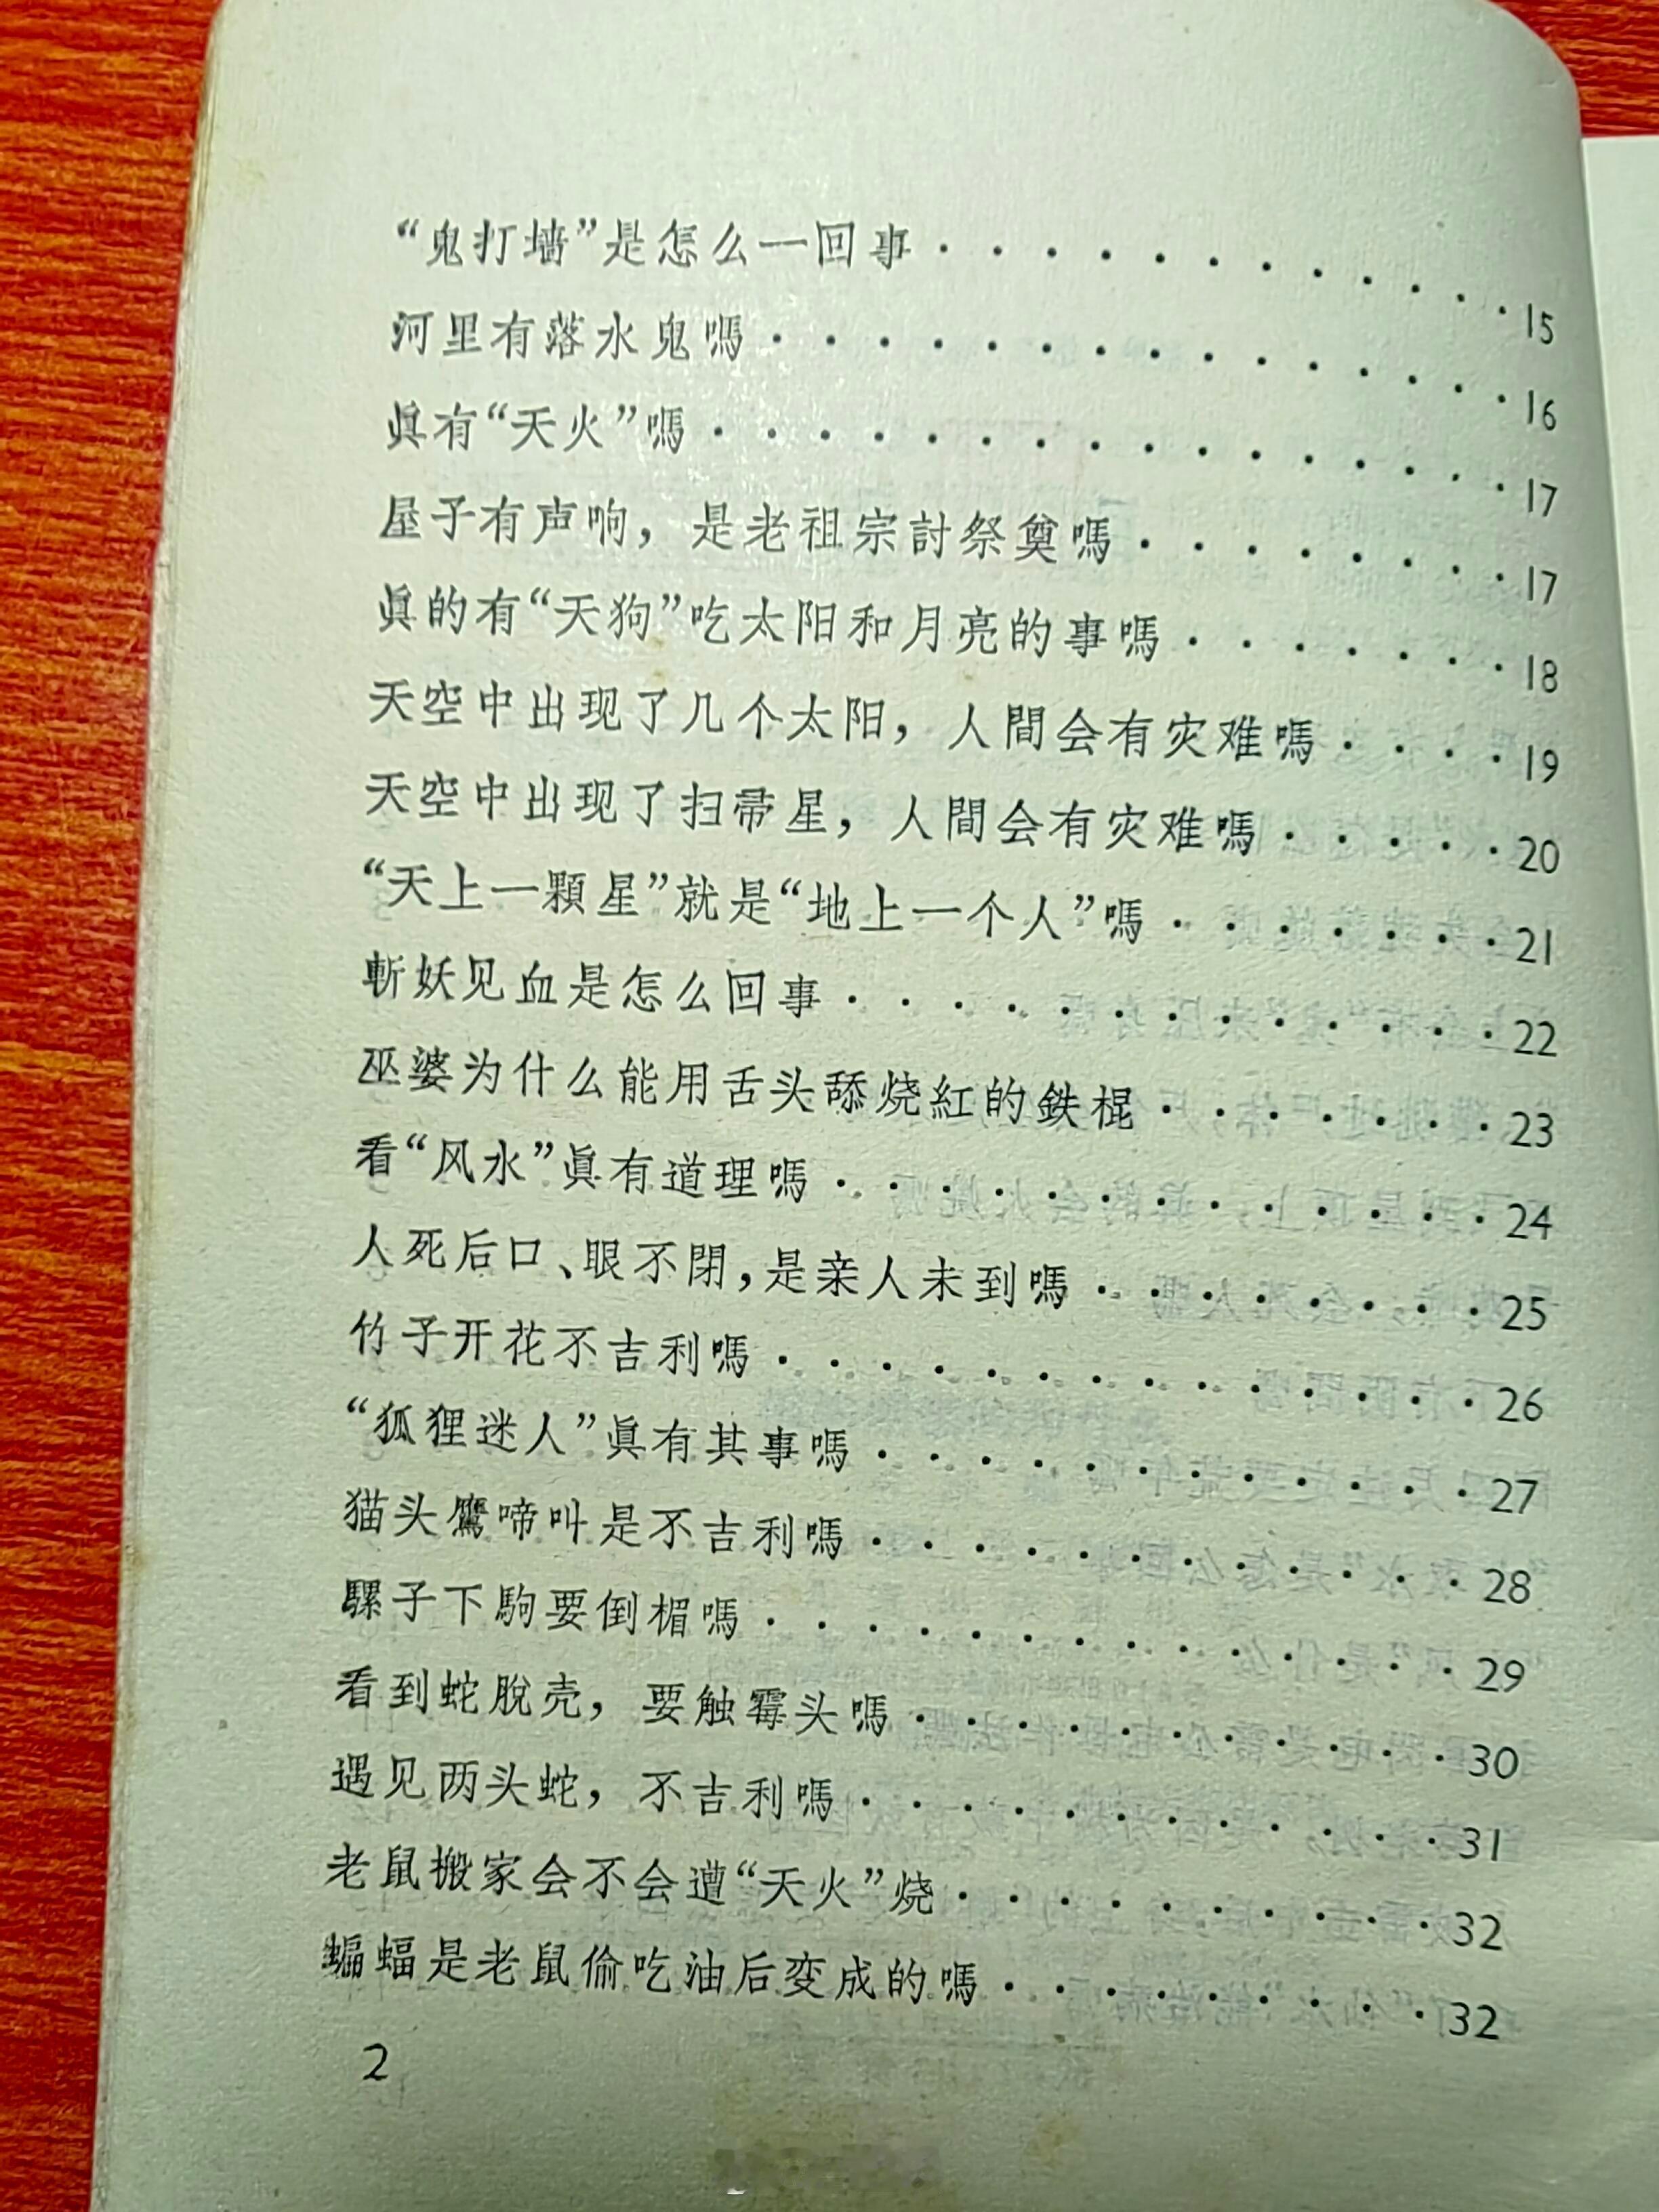 “鬼打墙”是怎么一回事··········15
河里有落水鬼嗎··············16
眞有“天火”嗎···············17
屋子有声响，是老祖宗討祭奠嗎·······17
眞的有“天狗”吃太阳和月亮的事嗎······18
天空中出现了几个太阳，人間会有灾难嗎····19
天空中出现了扫帚星，人間会有灾难嗎·····20
“天上一顆星”就是“地上一个人”嗎······21
斬妖见血是怎么回事············22
巫婆为什么能用舌头舔烧紅的鉄棍·······23
看“风水”眞有道理嗎············24
人死后口、眼不閉，是亲人未到嗎·······25
竹子开花不吉利嗎·············26
“狐狸迷人”眞有其事嗎···········27
猫头鷹啼叫是不吉利嗎···········28
騾子下駒要倒楣嗎·············29
看到蛇脫壳，要触霉头嗎··········30
遇见两头蛇，不吉利嗎···········31
老鼠搬家会不会遭“天火”烧·········32
蝙蝠是老鼠偷吃油后变成的嗎········32
2